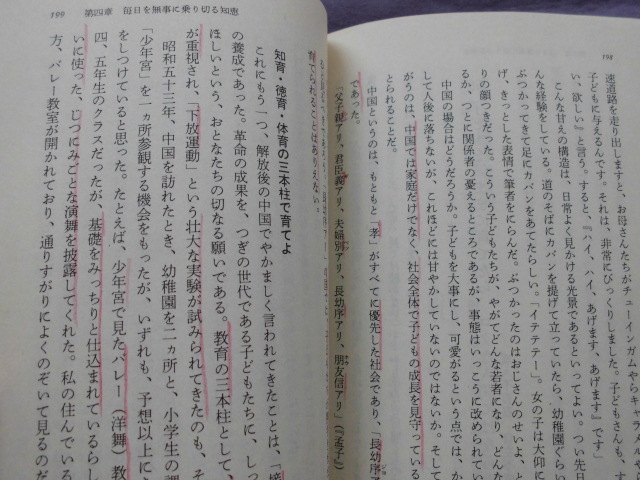 198
速道路を走り出しますと、お母さんたちがチューインガムやらキャラメルやら
子どもに与えるんです。それは、非常にびっくりしました。子どもさんも、
い、欲しい』と言う。すると、『ハイ、ハイ、あげます、あげます』です」
こんな甘えの構造は、日常よく見かける光景であるといってよい。つい先日
んな経験をしている。道のそばにカバンを提げて立っていたら、幼稚園ぐらい
ぶつかってきて足にカバンをあてたらしい。「イテテテー」。女の子は大仰に
げ、きっとした表情で筆者をにらんだ。ぶつかったのはおじさんのせいよ、と
りの顔つきだった。こういう子どもたちが、やがてどんな若者になり、どんな
るか、つとに関係者の憂えるところであるが、事態はいっこうに改められてい
中国の場合はどうだろうか。子どもを大事にし、可愛がるという点では、か
して人後に落ちないが、これほどには甘やかしていないのではないか。そして
がうのは、中国では家庭だけでなく、社会全体で子どもの成長を見守っている
とられることだ。
中国というのは、もともと「孝」がすべてに優先した社会であり、「長幼序ア
「父子親アリ、君臣義アリ、夫婦別アリ、長幼序アリ、朋友信アリ」（『孟子』）
であった。
199 第四章 毎日を無事に乗り切る知恵
育てられることはありえない。
知育・徳育・体育の三本柱で育てよ
これにもう一つ、解放後の中国でやかましく言われてきたことは、「接
の養成であった。革命の成果を、つぎの世代である子どもたちに、しっ
ほしいという、おとなたちの切なる願いである。教育の三本柱として、
が重視され、「下放運動」という壮大な実験が試みられてきたのも、そ
昭和五十三年、中国を訪れたとき、幼稚園を二ヵ所と、小学生の課
「少年宮」を一ヵ所参観する機会をもったが、いずれも、予想以上にき
をしつけていると思った。たとえば、少年宮で見たバレー（洋舞）教
四、五年生のクラスだったが、基礎をみっちりと仕込まれているらし
いに使った、じつにみごとな演舞を披露してくれた。私の住んでいる
方、バレー教室が開かれており、通りすがりによくのぞいて見るのだ